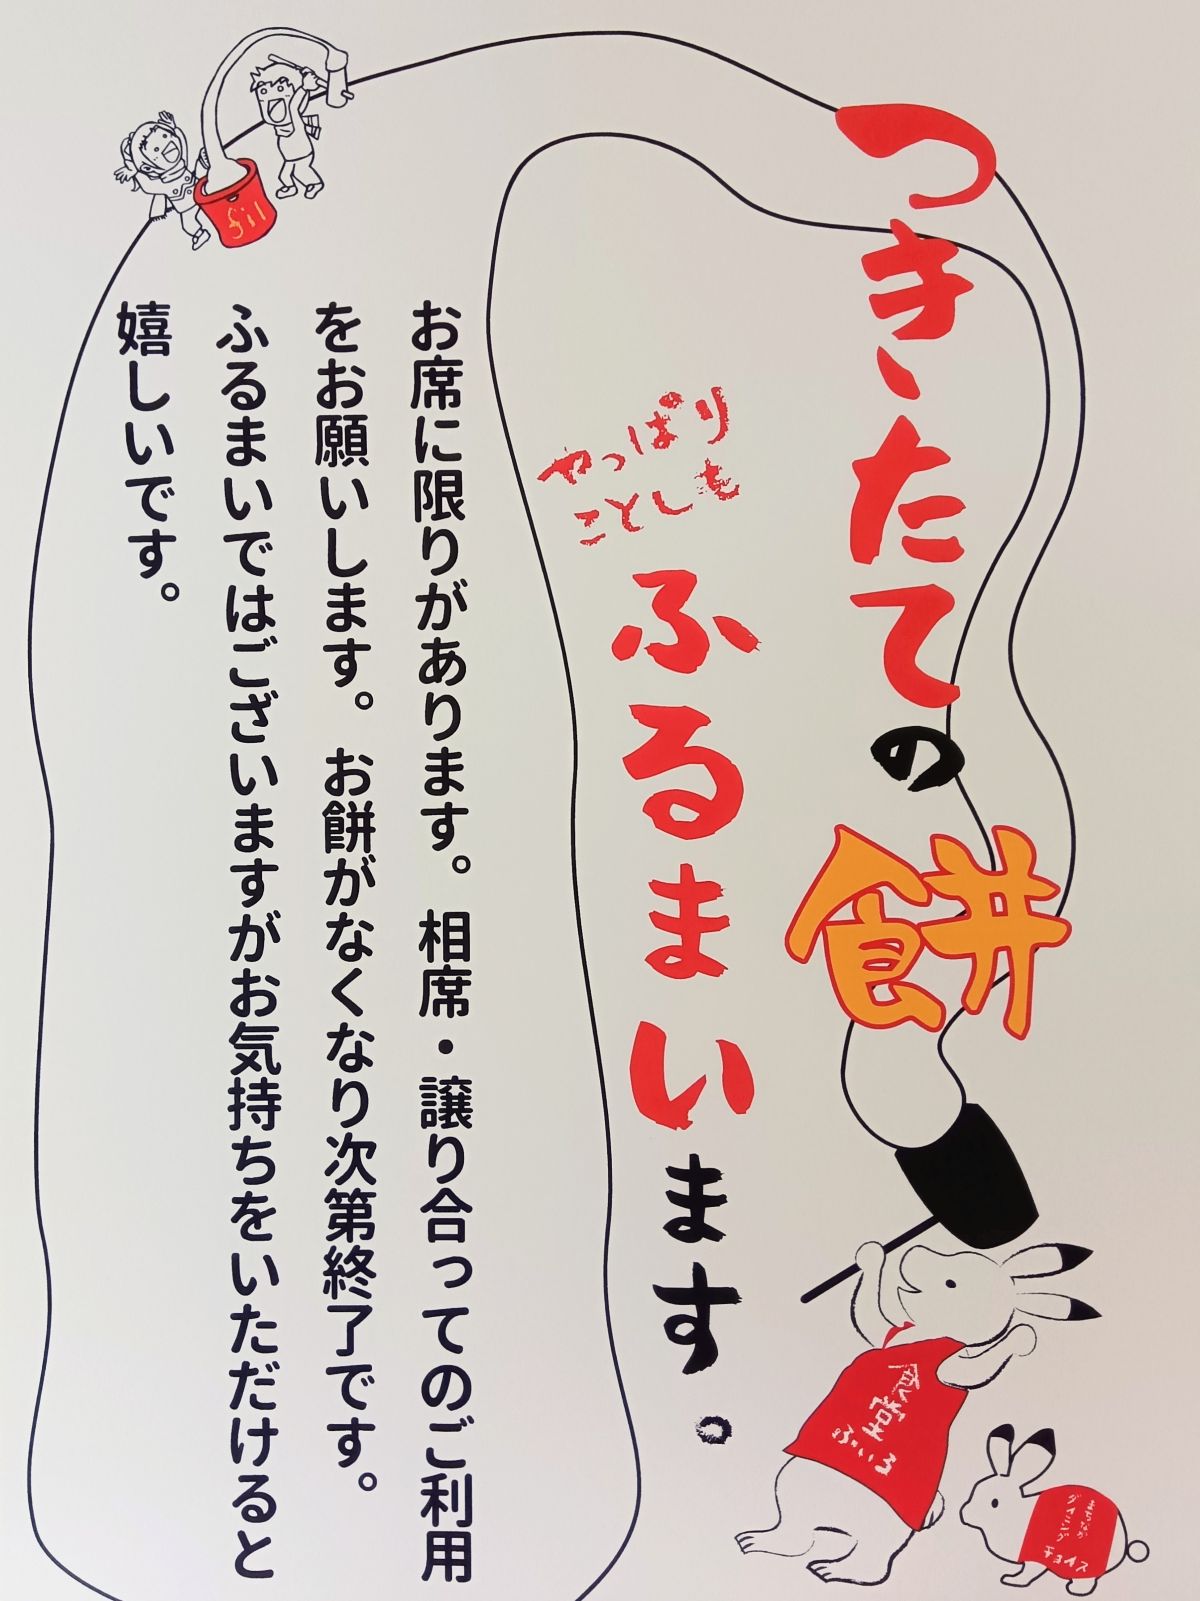 つきたての餅
やっぱり
ことしも
ふるまいます。
お席に限りがあります。相席・譲り合ってのご利用
をお願いします。お餅がなくなり次第終了です。
ふるまいではございますがお気持ちをいただけると
嬉しいです。
fil
食堂
ふぃる
まちなか
ダイニング
チョイス